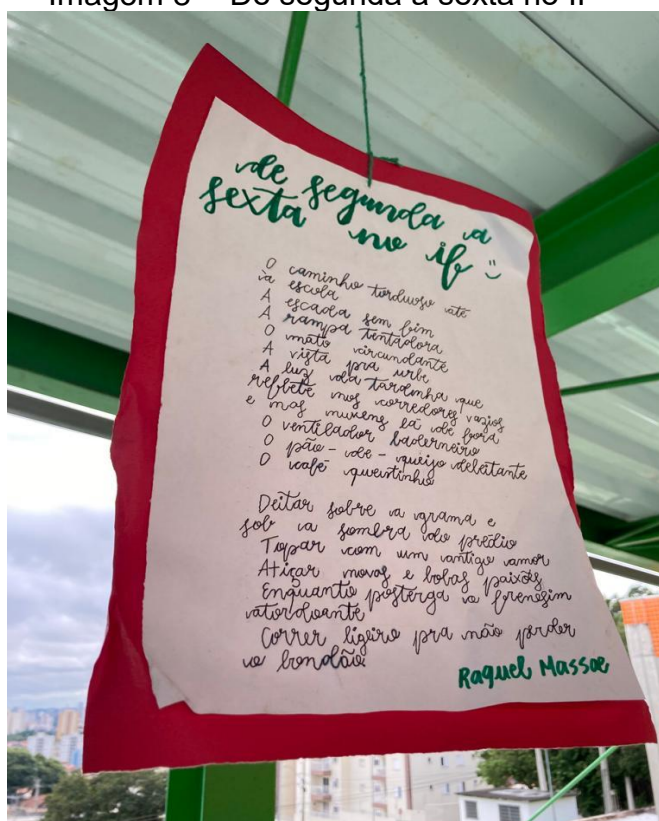 de segunda a
sexta no if :)
O caminho tortuoso até
a escola
A escada sem fim
A rampa tentadora
O mato circundante
A vista pra urbe
A luz da tardinha que
reflete nos corredores vazios
e nas nuvens lá de fora
O ventilador baderneiro
O pão-de-queijo deleitante
O café quentinho
Deitar sobre a grama e
sob a sombra do prédio
Topar com um antigo amor
Atiçar novas e bobas paixões
Enquanto posterga o frenesim
atordoante
Correr ligeiro pra não perder
o bondão
Raquel Massae